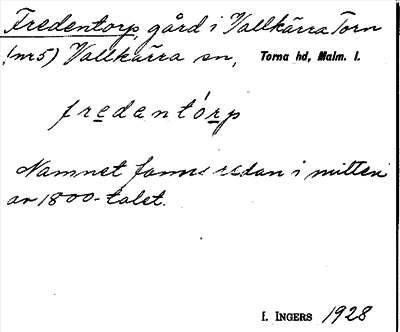 Fredentorp, gård i Vallkärra Torn
(nr 5) Vallkärra sn, Torna hd, Malm. l.
fredentórp
Namnet fanns redan i mitten
av 1800-talet.
f. INGERS 1928